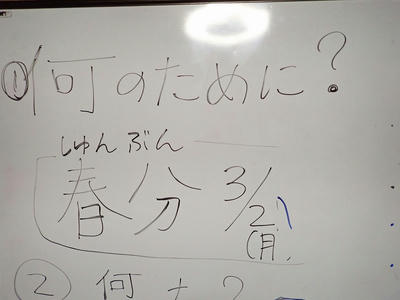 ① 何のために?
しゅんぶん
春分 3/2
(月
② 何